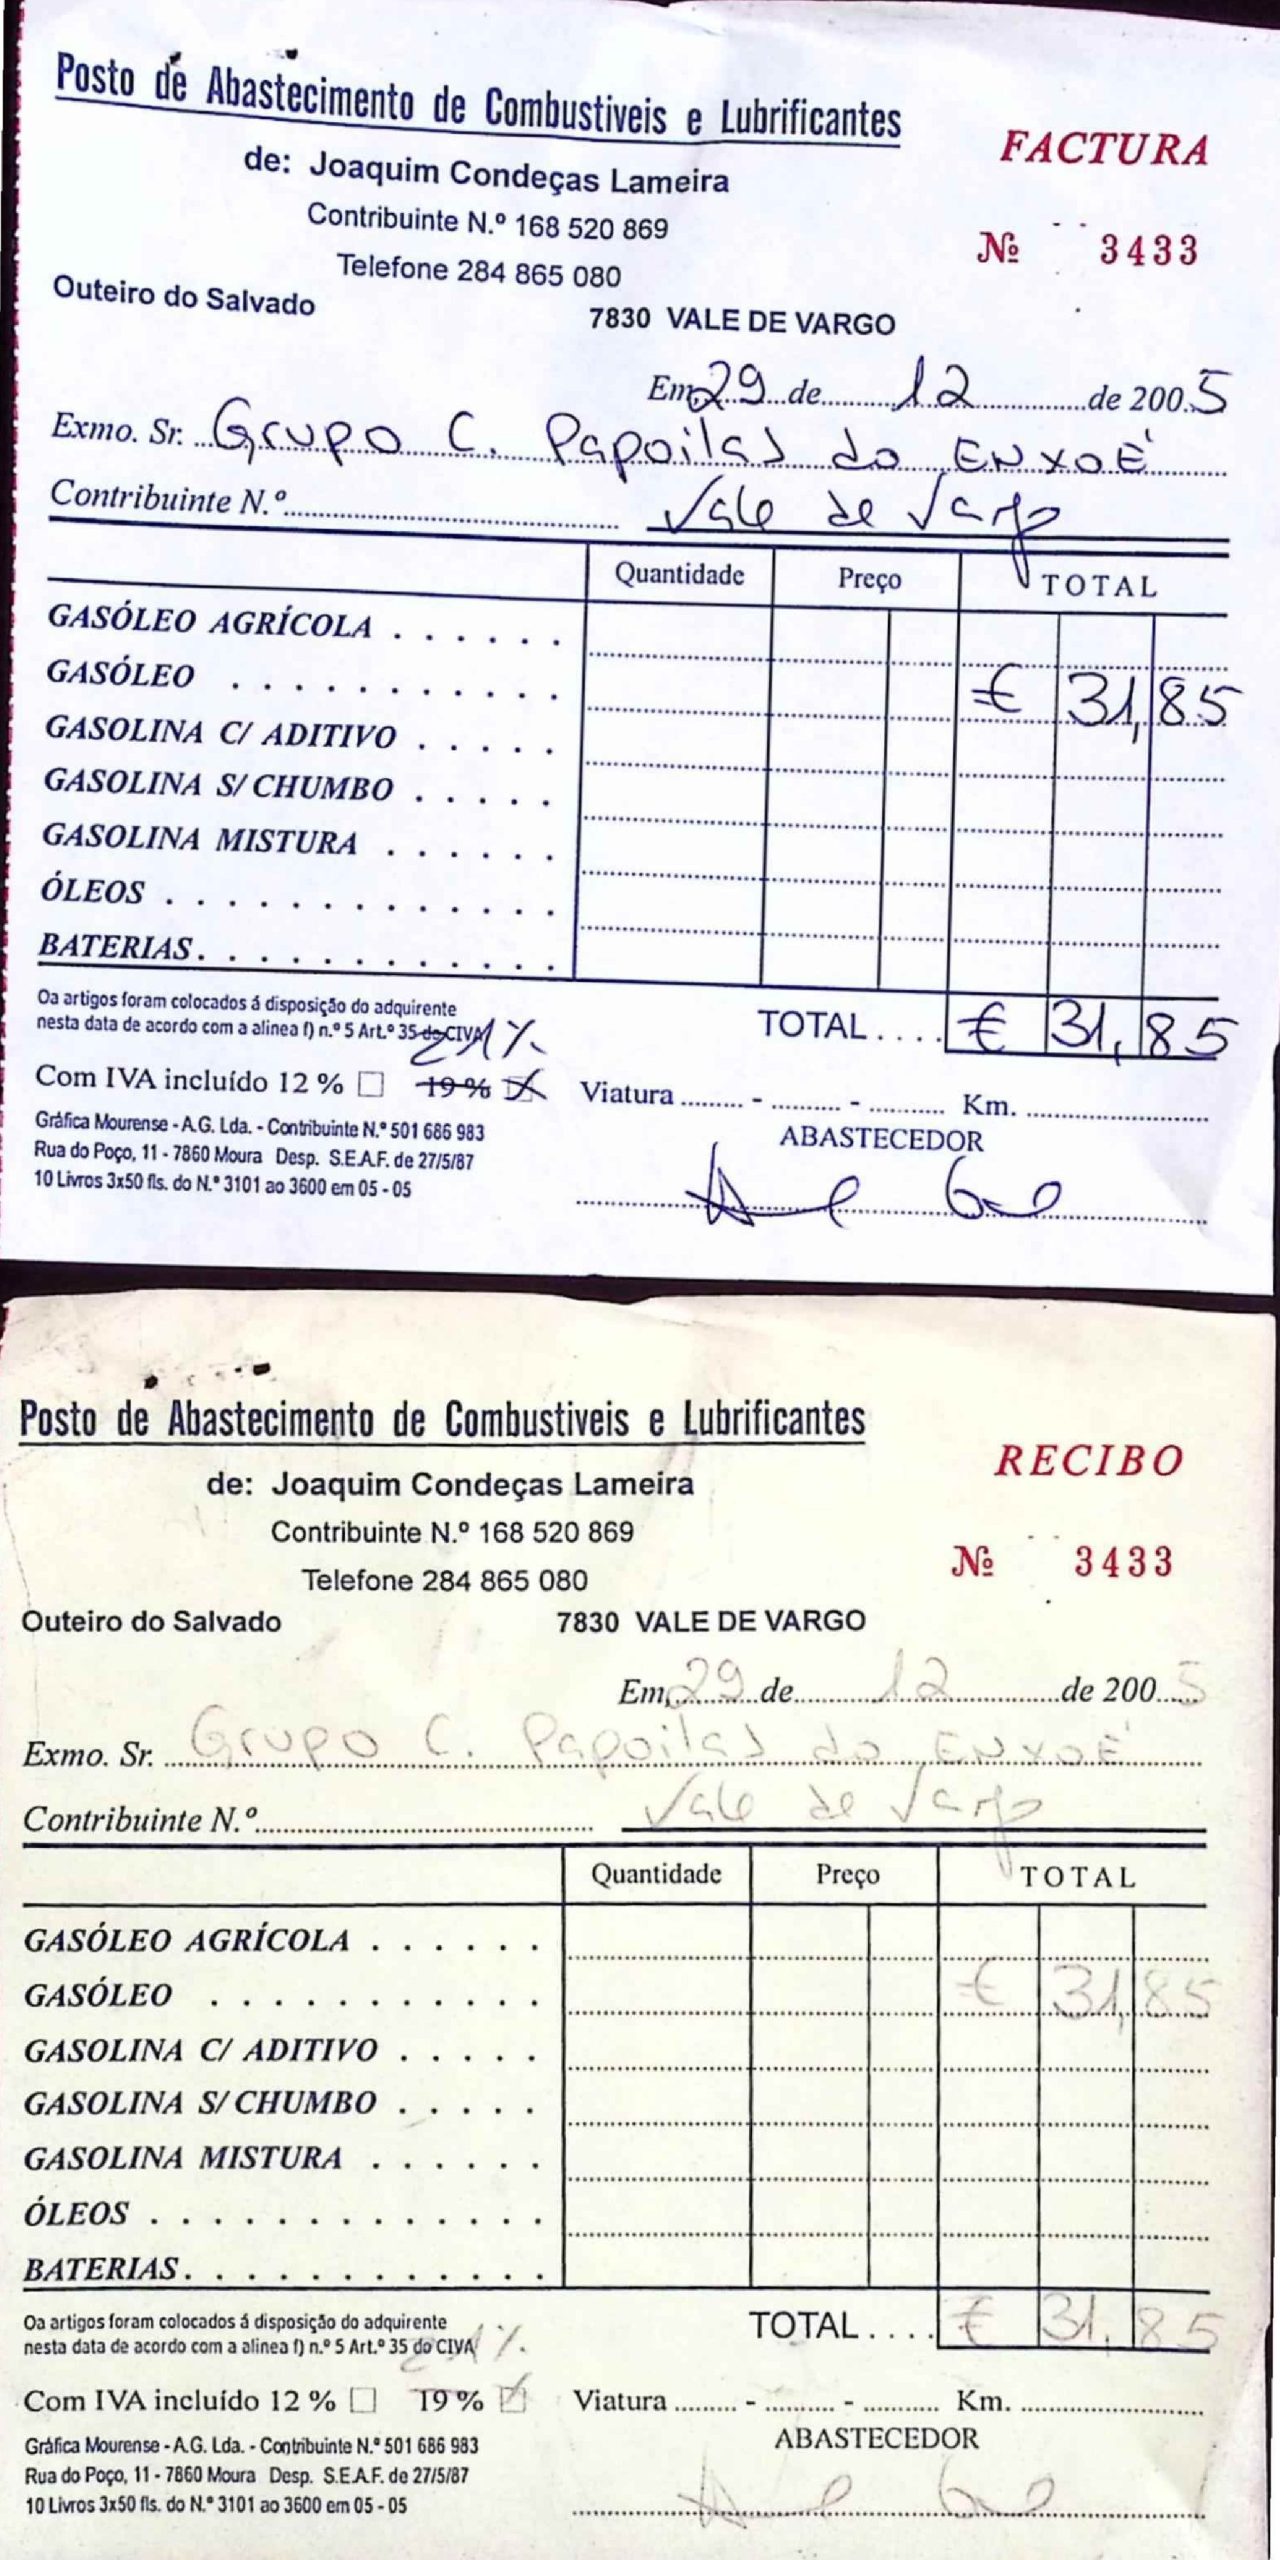 Posto de Abastecimento de Combustiveis e Lubrificantes
de: Joaquim Condeças Lameira
FACTURA
Contribuinte N.º 168 520 869
Nº 3433
Telefone 284 865 080
Outeiro do Salvado
7830 VALE DE VARGO
Em 29 de 12 de 2005
Exmo. Sr. Grupo C. Papoilas do ENXOÉ
Contribuinte N.º Vale de Vargo
Quantidade Preço TOTAL
GASÓLEO AGRÍCOLA
GASÓLEO € 31,85
GASOLINA C/ ADITIVO
GASOLINA S/ CHUMBO
GASOLINA MISTURA
ÓLEOS
BATERIAS
Oa artigos foram colocados á disposição do adquirente
nesta data de acordo com a alinea f) n.º 5 Art.º 35 do CIVA
TOTAL.... € 31,85
21%
Com IVA incluído 12 % 19 % Viatura - - Km.
Gráfica Mourense - A.G. Lda. - Contribuinte N.º 501 686 983
ABASTECEDOR
Rua do Poço, 11 - 7860 Moura Desp. S.E.A.F. de 27/5/87
10 Livros 3x50 fls. do N.º 3101 ao 3600 em 05 - 05
Posto de Abastecimento de Combustiveis e Lubrificantes
RECIBO
de: Joaquim Condeças Lameira
Contribuinte N.º 168 520 869
Nº 3433
Telefone 284 865 080
Outeiro do Salvado
7830 VALE DE VARGO
Em 29 de 12 de 2005
Exmo. Sr. Grupo C. Papoilas do ENXOÉ
Contribuinte N.º Vale de Vargo
Quantidade Preço TOTAL
GASÓLEO AGRÍCOLA
GASÓLEO € 31,85
GASOLINA C/ ADITIVO
GASOLINA S/ CHUMBO
GASOLINA MISTURA
ÓLEOS
BATERIAS
Oa artigos foram colocados á disposição do adquirente
nesta data de acordo com a alinea f) n.º 5 Art.º 35 do CIVA
TOTAL.... € 31,85
21%
Com IVA incluído 12 % 19 % Viatura - - Km.
Gráfica Mourense - A.G. Lda. - Contribuinte N.º 501 686 983
ABASTECEDOR
Rua do Poço, 11 - 7860 Moura Desp. S.E.A.F. de 27/5/87
10 Livros 3x50 fls. do N.º 3101 ao 3600 em 05 - 05